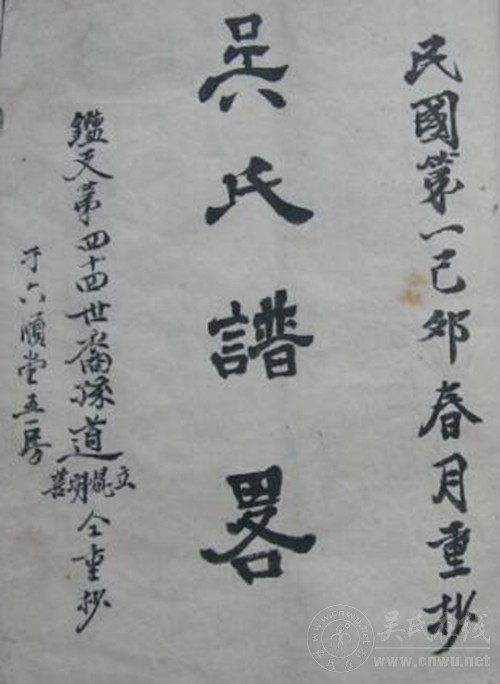 民國第一己卯春月重抄
吳氏譜畧
鑑天第四十四世裔孫道立昆明善仝重抄
于六順堂五房
吴氏在线
www.cnwu.net